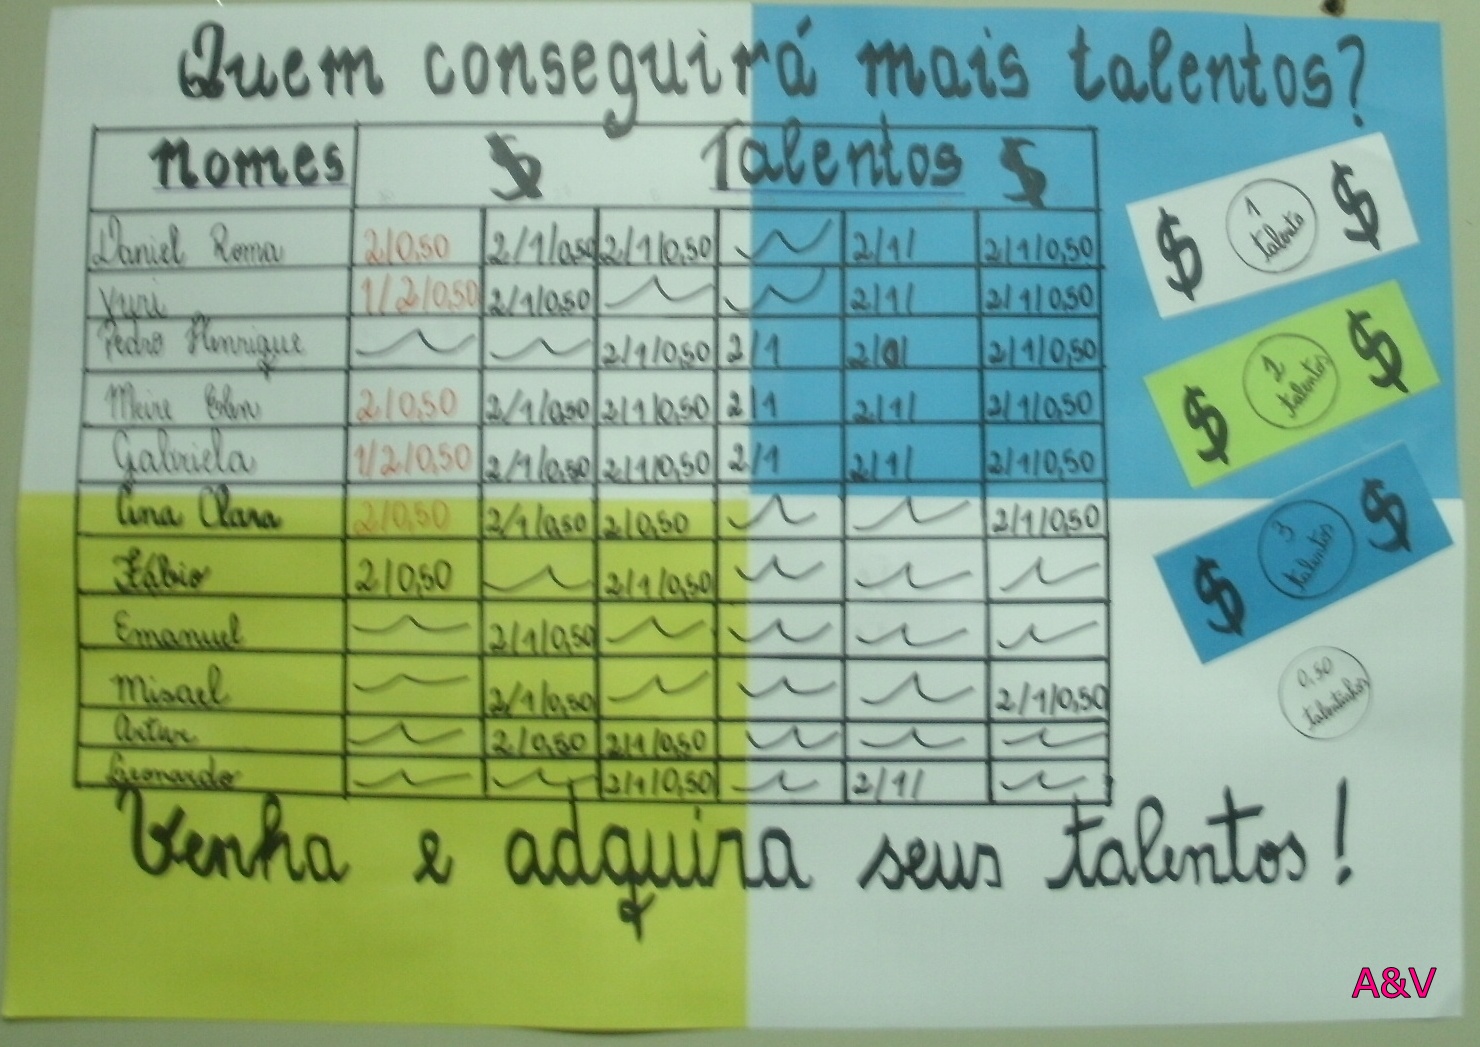 Quem conseguirá mais talentos?
Nomes $ Talentos $
Daniel Roma 2/0,50 2/1/0,50 2/1/0,50 2/1/ 2/1/0,50
Yuri 1/2/0,50 2/1/0,50 2/1/ 2/1/0,50
Pedro Henrique 2/1/0,50 2/1 2/1/ 2/1/0,50
Meire 2/0,50 2/1/0,50 2/1/0,50 2/1 2/1/ 2/1/0,50
Gabriela 1/2/0,50 2/1/0,50 2/1/0,50 2/1 2/1/ 2/1/0,50
Ana Clara 2/0,50 2/1/0,50 2/0,50 2/1/0,50
Fábio 2/0,50 2/1/0,50
Emanuel 2/1/0,50
Misael 2/1/0,50 2/1/0,50
Artur 2/0,50 2/1/0,50
Leonardo 2/1/0,50 2/1/
Venha e adquira seus talentos!
$ 1 talento $
$ 2 talentos $
$ 3 talentos $
0,50
talentinhos
A&V